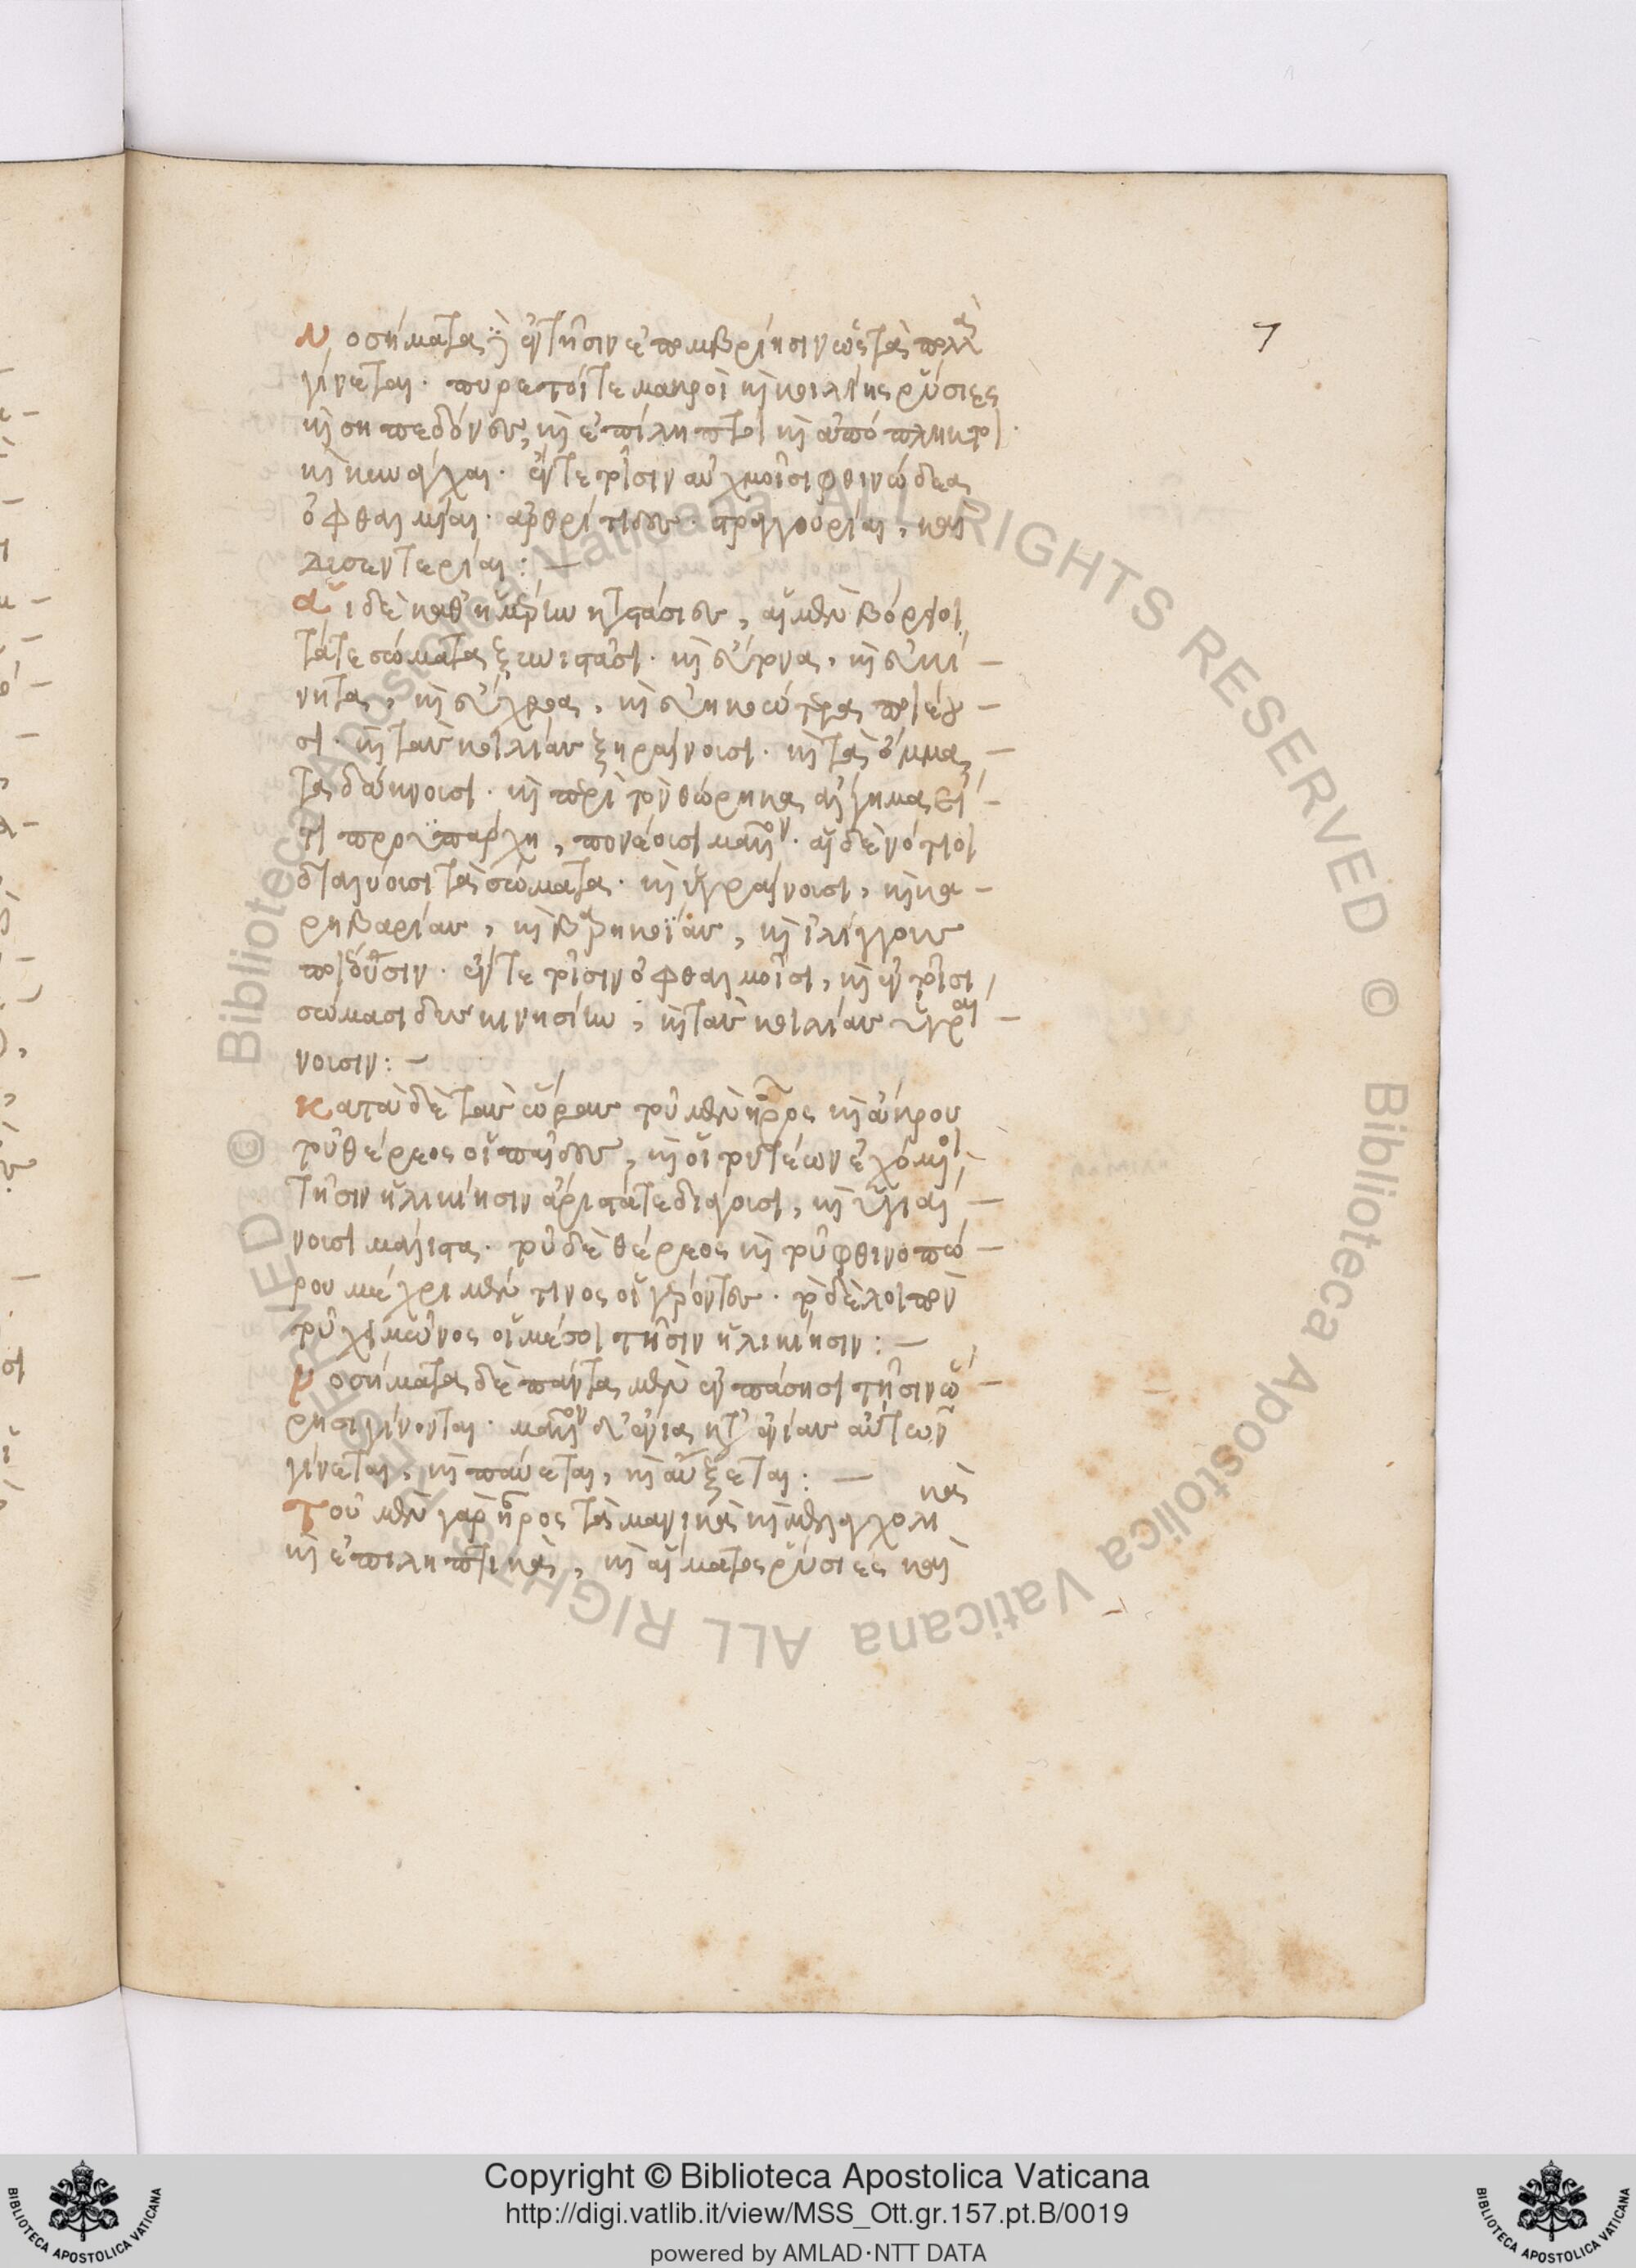 7
Νοσήματα δὲ ἐν τῆσιν ἐπομβρίησιν ὡς τὰ πολλὰ
γίνεται· πυρετοί τε μακροὶ καὶ κοιλίης ῥύσιες
καὶ σηπεδόνες, καὶ ἐπίληπτοι καὶ ἀπόπληκτοι·
καὶ κυνάγχαι· ἐν τε τοῖσιν αὐχμοῖσι φθινώδεα
ὀφθαλμίαι· ἀρθρίτιδες· στραγγουρίαι, καὶ
δισεντερίαι:—
Αἱ δὲ καθ' ἡμέρην καταστάσιες, αἱ μὲν βόρειοι
τά τε σώματα ξυνιστᾶσι· καὶ εὔτονα, καὶ εὐκί–
νητα, καὶ εὔχροα, καὶ εὐηκοώτερα ποιέου–
σι· καὶ τὰν κοιλίαν ξηραίνουσι· καὶ τὰ ὄμμα–
τα δάκνουσι· καὶ περὶ τὸν θώρηκα ἄλγημα εἴ–
τι προϋπάρχη, πονέουσι μᾶλλον· αἱ δὲ νότιοι
διαλύουσι τὰ σώματα· καὶ ὑγραίνουσι, καὶ κα–
ρηβαρίαν, καὶ βαρηκοΐαν, καὶ ἰλίγγους
ποιεῦσιν· ἐν τε τοῖσιν ὀφθαλμοῖσι, καὶ ἐν τοῖσι
σώμασι δυσκινησίην, καὶ τὰν κοιλίαν ὑγραί–
νουσιν:—
Κατὰ δὲ τὰν ὥραν τοῦ μὲν ἦρος καὶ ἄκρου
τοῦ θέρεος οἱ παῖδες, καὶ οἱ τουτέων ἐχόμενοι
τῆσιν ἡλικίησιν ἄριστά τε διάγουσι, καὶ ὑγιαί–
νουσι μάλιστα· τοῦ δὲ θέρεος καὶ τοῦ φθινοπώ–
ρου μέχρι μέν τινος οἱ γέροντες· τὸ δὲ λοιπὸν
τοῦ χειμῶνος οἱ μέσοι τῆσιν ἡλικίησιν:—
Νοσήματα δὲ πάντα μὲν ἐν πάσησι τῆσιν ὥ–
ρησι γίνονται· μᾶλλον δ' ἔνια κατ' ἐνίαν αὐτεων
γίνεται, καὶ παύεται, καὶ αὔξεται:—
Τοῦ μὲν γὰρ ἦρος τὰ μανικὰ καὶ μελαγχολικὰ
καὶ ἐπιληπτικὰ, καὶ αἵματος ῥύσιες καὶ
Copyright © Biblioteca Apostolica Vaticana
http://digi.vatlib.it/view/MSS_Ott.gr.157.pt.B/0019
powered by AMLAD·NTT DATA